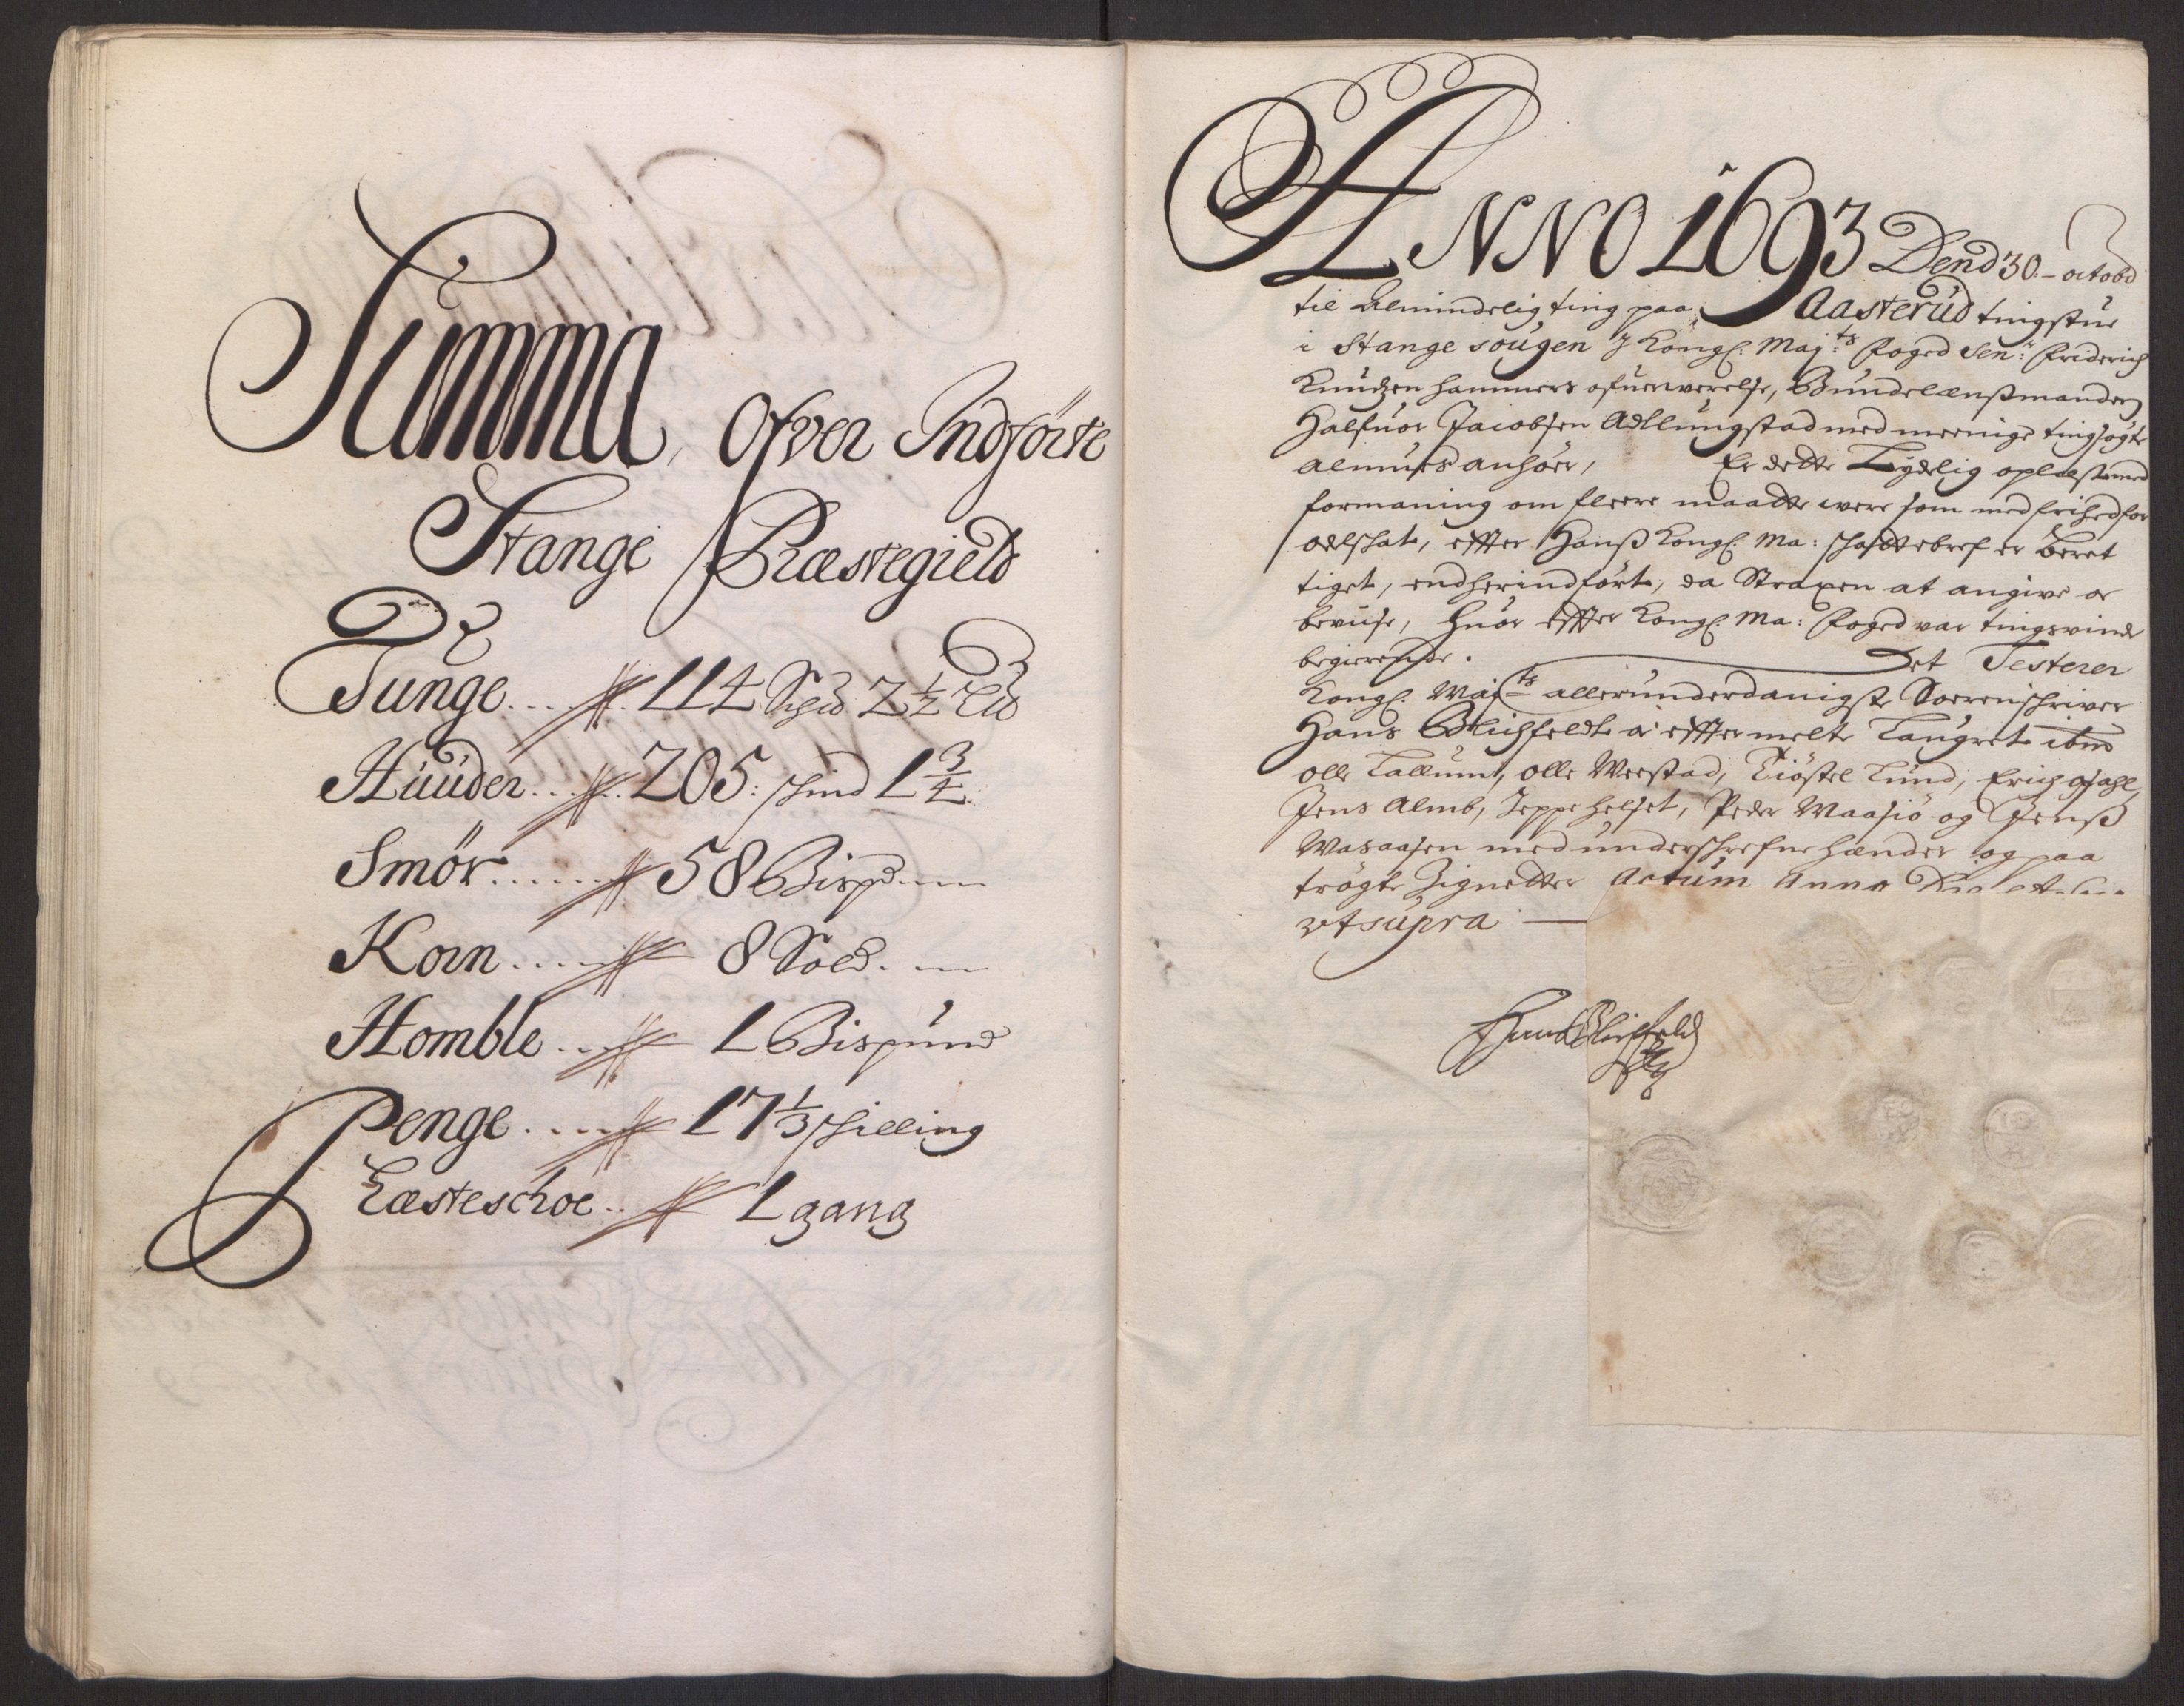 Summa, Ofver Indförte
Stange Præstegield
Tunge .... 114 Schd 2½ Lld
Huuder .... 205: schind 1¾
Smör ..... 58 Bispd
Korn .... 8 Sold
Homble ... 1 Bispund
Penge .... 17⅓ schilling
Læsteschoe .. 1 gang
ANNO 1693 Dend 30 - octobr
til Almindelig ting paa Aasterud tingstue
i Stange sougen J Kongl: Maj:ts foged Sen:r friderich
Knudzen hammers ofuerwerelse, Bundelænsmanden
Halfuor Jacobsen Adllungstad med meenige tingsögte
Almues anhöer, Er dette Lydelig oplæst med
formaning om fleere maatte were som med frihed for
odelschat, effter Hanß Kongl: Ma: schattebref er beret
tiget, end herindförte, da Straxen at angive og
beviise, huor effter Kongl: Ma: foged var tingsvinde
begierende. Det Testerer
Kongl: Maj:ts allerunderdanigste Sorenschriver
Hans Blichfeldt oc efftermelte Laugret ibm
olle Tallum, olle Weestad, Kiöstel Lund, Erich opsahl,
Jens Almb, Jeppe helset, Peder Maasiö og Jenß
Wasaasen med underschrefne hænder og paa
trögte Zignetter Actum Anno Die et
ut supra
Hans Blichfeld